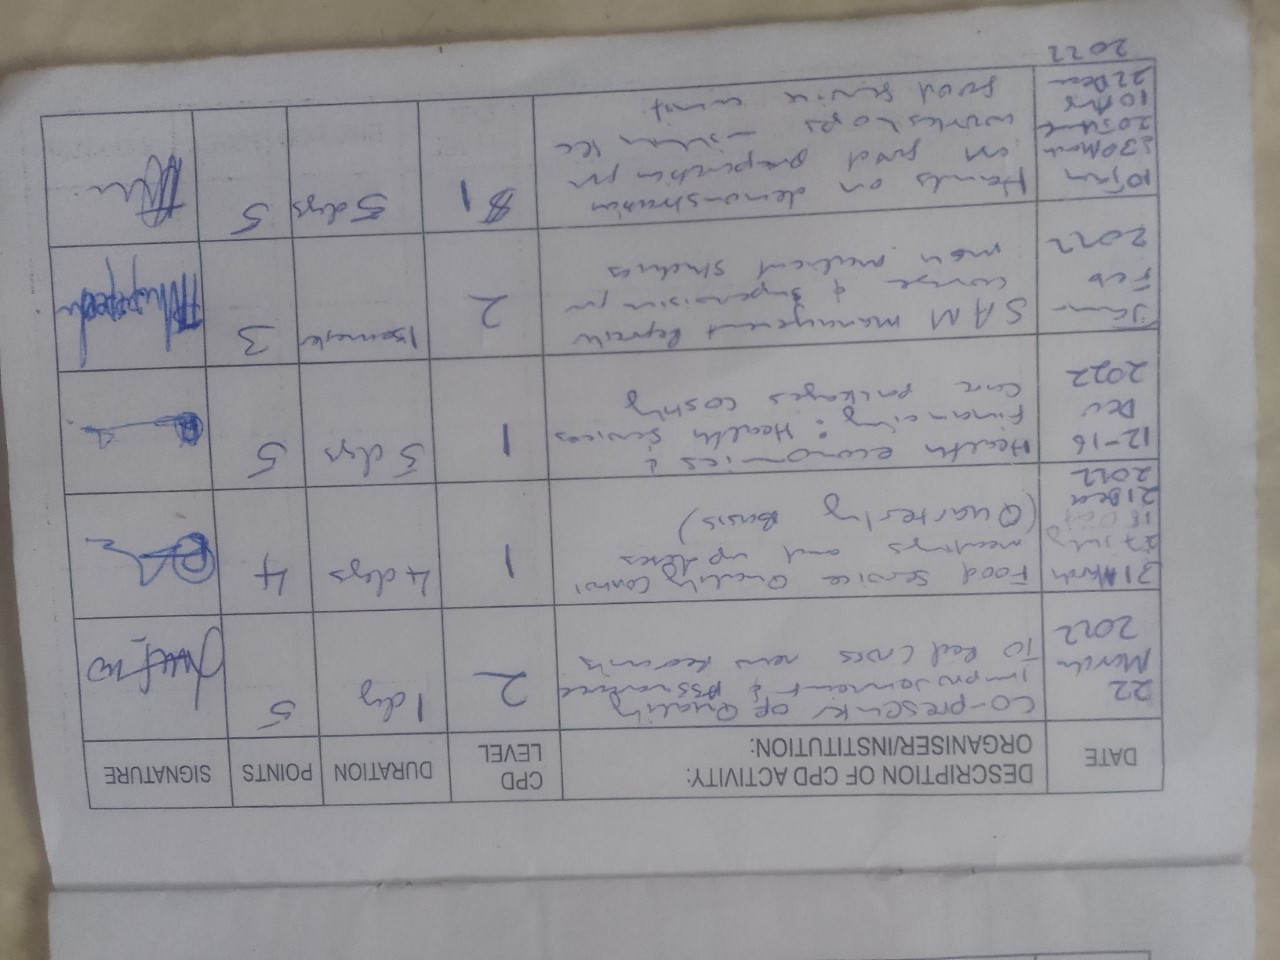 DATE
DESCRIPTION OF CPD ACTIVITY:
ORGANISER/INSTITUTION:
CPD
LEVEL
DURATION
POINTS
SIGNATURE
22
March
2022
CO-presenter of Quality
improvement & Assurance
To Red Cross new recruits
2
1 day
5
31 March
27 July
18 Oct
21 Dec
2022
Food Service Quality Control
meetings and updates
(Quarterly Basis)
1
4 days
4
12-16
Dec
2022
Health economics &
Financing: Health Services
Care packages costing
1
5 days
5
Jan-
Feb
2022
SAM management
course & supervision for
medical students
2
1 semester
3
10 Jan
30 March
20 June
10 Aug
22 Dec
2022
Hands on demonstration
on food preparation for
workshops
food service unit
1
5 days
5